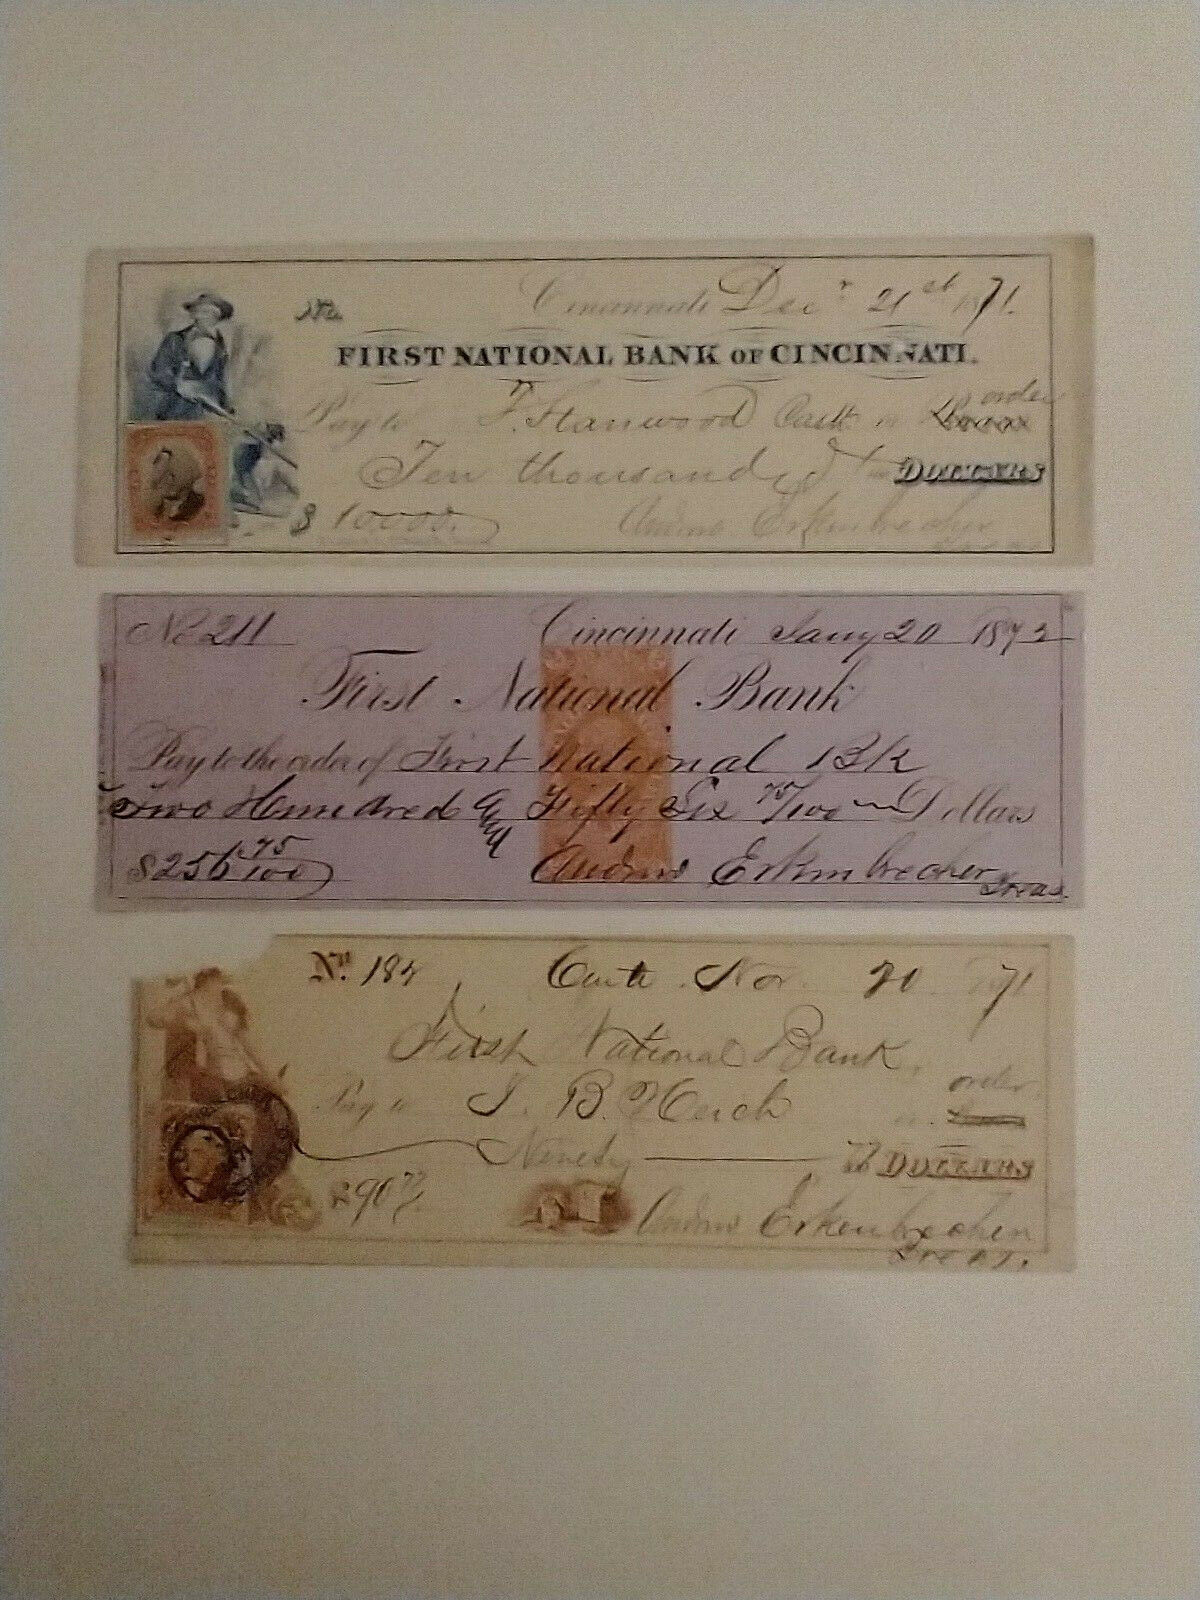 No.
Cincinnati Decr. 21st 1871.
FIRST NATIONAL BANK OF CINCINNATI.
Pay to F. Stanwood Cash or order
Ten thousand DOLLARS
$10000. Andrew Erkenbrecher
No 211 Cincinnati Jany 20 1872
First National Bank
Pay to the order of First National Bk
Two Hundred and Fifty Six 75/100 Dollars
$256 75/100 Andrew Erkenbrecher
Treas.
No. 182 Cinti. Nov. 20 71
First National Bank,
Pay to J. B. order
Ninety DOLLARS
$90 Andrew Erkenbrecher
Treas.